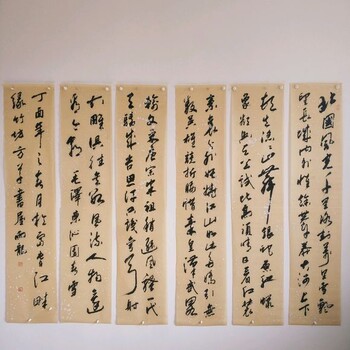 北國風光千里冰封萬里雪飄
望長城內外惟餘莽莽大河上下
頓失滔滔山舞銀蛇原馳蠟
象欲與天公試比高須晴日看紅裝
素裹分外妖嬈江山如此多嬌引無
數英雄競折腰惜秦皇漢武略
輸文采唐宗宋祖稍遜風騷一代
天驕成吉思汗只識彎弓射
大雕俱往矣數風流人物還
看今朝 毛澤東沁園春雪
丁酉年之春月於富春江畔
竹坊方草書屋龍